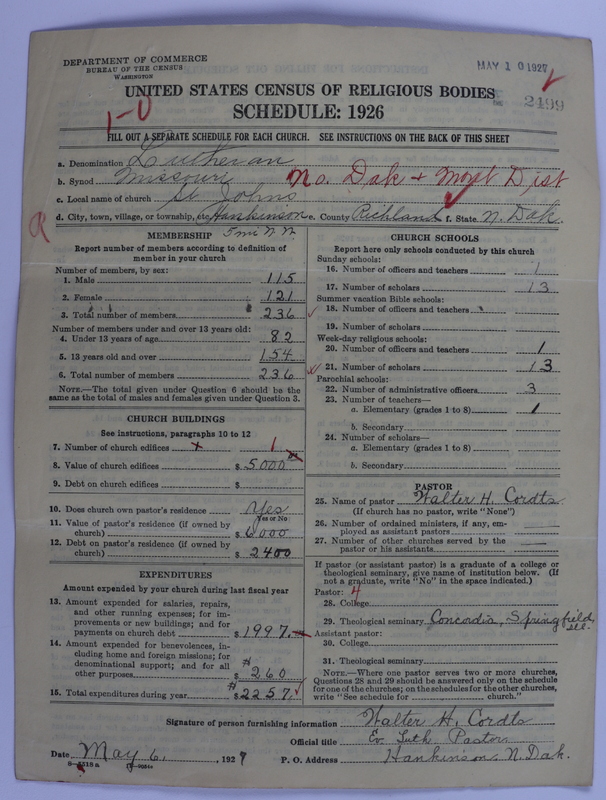 DEPARTMENT OF COMMERCE
BUREAU OF THE CENSUS
WASHINGTON
MAY 10 1927
UNITED STATES CENSUS OF RELIGIOUS BODIES
2499
SCHEDULE: 1926
1-0
FILL OUT A SEPARATE SCHEDULE FOR EACH CHURCH. SEE INSTRUCTIONS ON THE BACK OF THIS SHEET
a. Denomination Lutheran
b. Synod Missouri No. Dak + Mont Dist
c. Local name of church St Johns
d. City, town, village, or township, etc. Hankinson e. County Richland f. State N. Dak.
5 mi N W
MEMBERSHIP
Report number of members according to definition of member in your church
Number of members, by sex:
1. Male 115
2. Female 121
3. Total number of members 236
Number of members under and over 13 years old:
4. Under 13 years of age 82
5. 13 years old and over 154
6. Total number of members 236
NOTE.—The total given under Question 6 should be the same as the total of males and females given under Question 3.
CHURCH BUILDINGS
See instructions, paragraphs 10 to 12
7. Number of church edifices x 1
8. Value of church edifices $ 5000
9. Debt on church edifices $
10. Does church own pastor's residence Yes
Yes or No
11. Value of pastor's residence (if owned by church) $ 6000
12. Debt on pastor's residence (if owned by church) $ 2400
EXPENDITURES
Amount expended by your church during last fiscal year
13. Amount expended for salaries, repairs, and other running expenses; for improvements or new buildings; and for payments on church debt $ 1997.
14. Amount expended for benevolences, including home and foreign missions; for denominational support; and for all other purposes $ 260
15. Total expenditures during year $ 2257.
CHURCH SCHOOLS
Report here only schools conducted by this church
Sunday schools:
16. Number of officers and teachers 1
17. Number of scholars 13
Summer vacation Bible schools:
18. Number of officers and teachers
19. Number of scholars
Week-day religious schools:
20. Number of officers and teachers 1
21. Number of scholars 13
Parochial schools:
22. Number of administrative officers 3
23. Number of teachers—
a. Elementary (grades 1 to 8) 1
b. Secondary
24. Number of scholars—
a. Elementary (grades 1 to 8)
b. Secondary
PASTOR
25. Name of pastor Walter H. Cordts
(If church has no pastor, write "None")
26. Number of ordained ministers, if any, employed as assistant pastors
27. Number of other churches served by the pastor or his assistants
If pastor (or assistant pastor) is a graduate of a college or theological seminary, give name of institution below. (If not a graduate, write "No" in the space indicated.)
Pastor: 4
28. College
29. Theological seminary Concordia, Springfield, Ill.
Assistant pastor:
30. College
31. Theological seminary
NOTE.—Where one pastor serves two or more churches, Questions 28 and 29 should be answered only on the schedule for one of the churches; on the schedules for the other churches, write "See schedule for church."
Signature of person furnishing information Walter H. Cordts
Official title Ev. Luth Pastor
Date May 6, 1927 P. O. Address Hankinson, N. Dak.